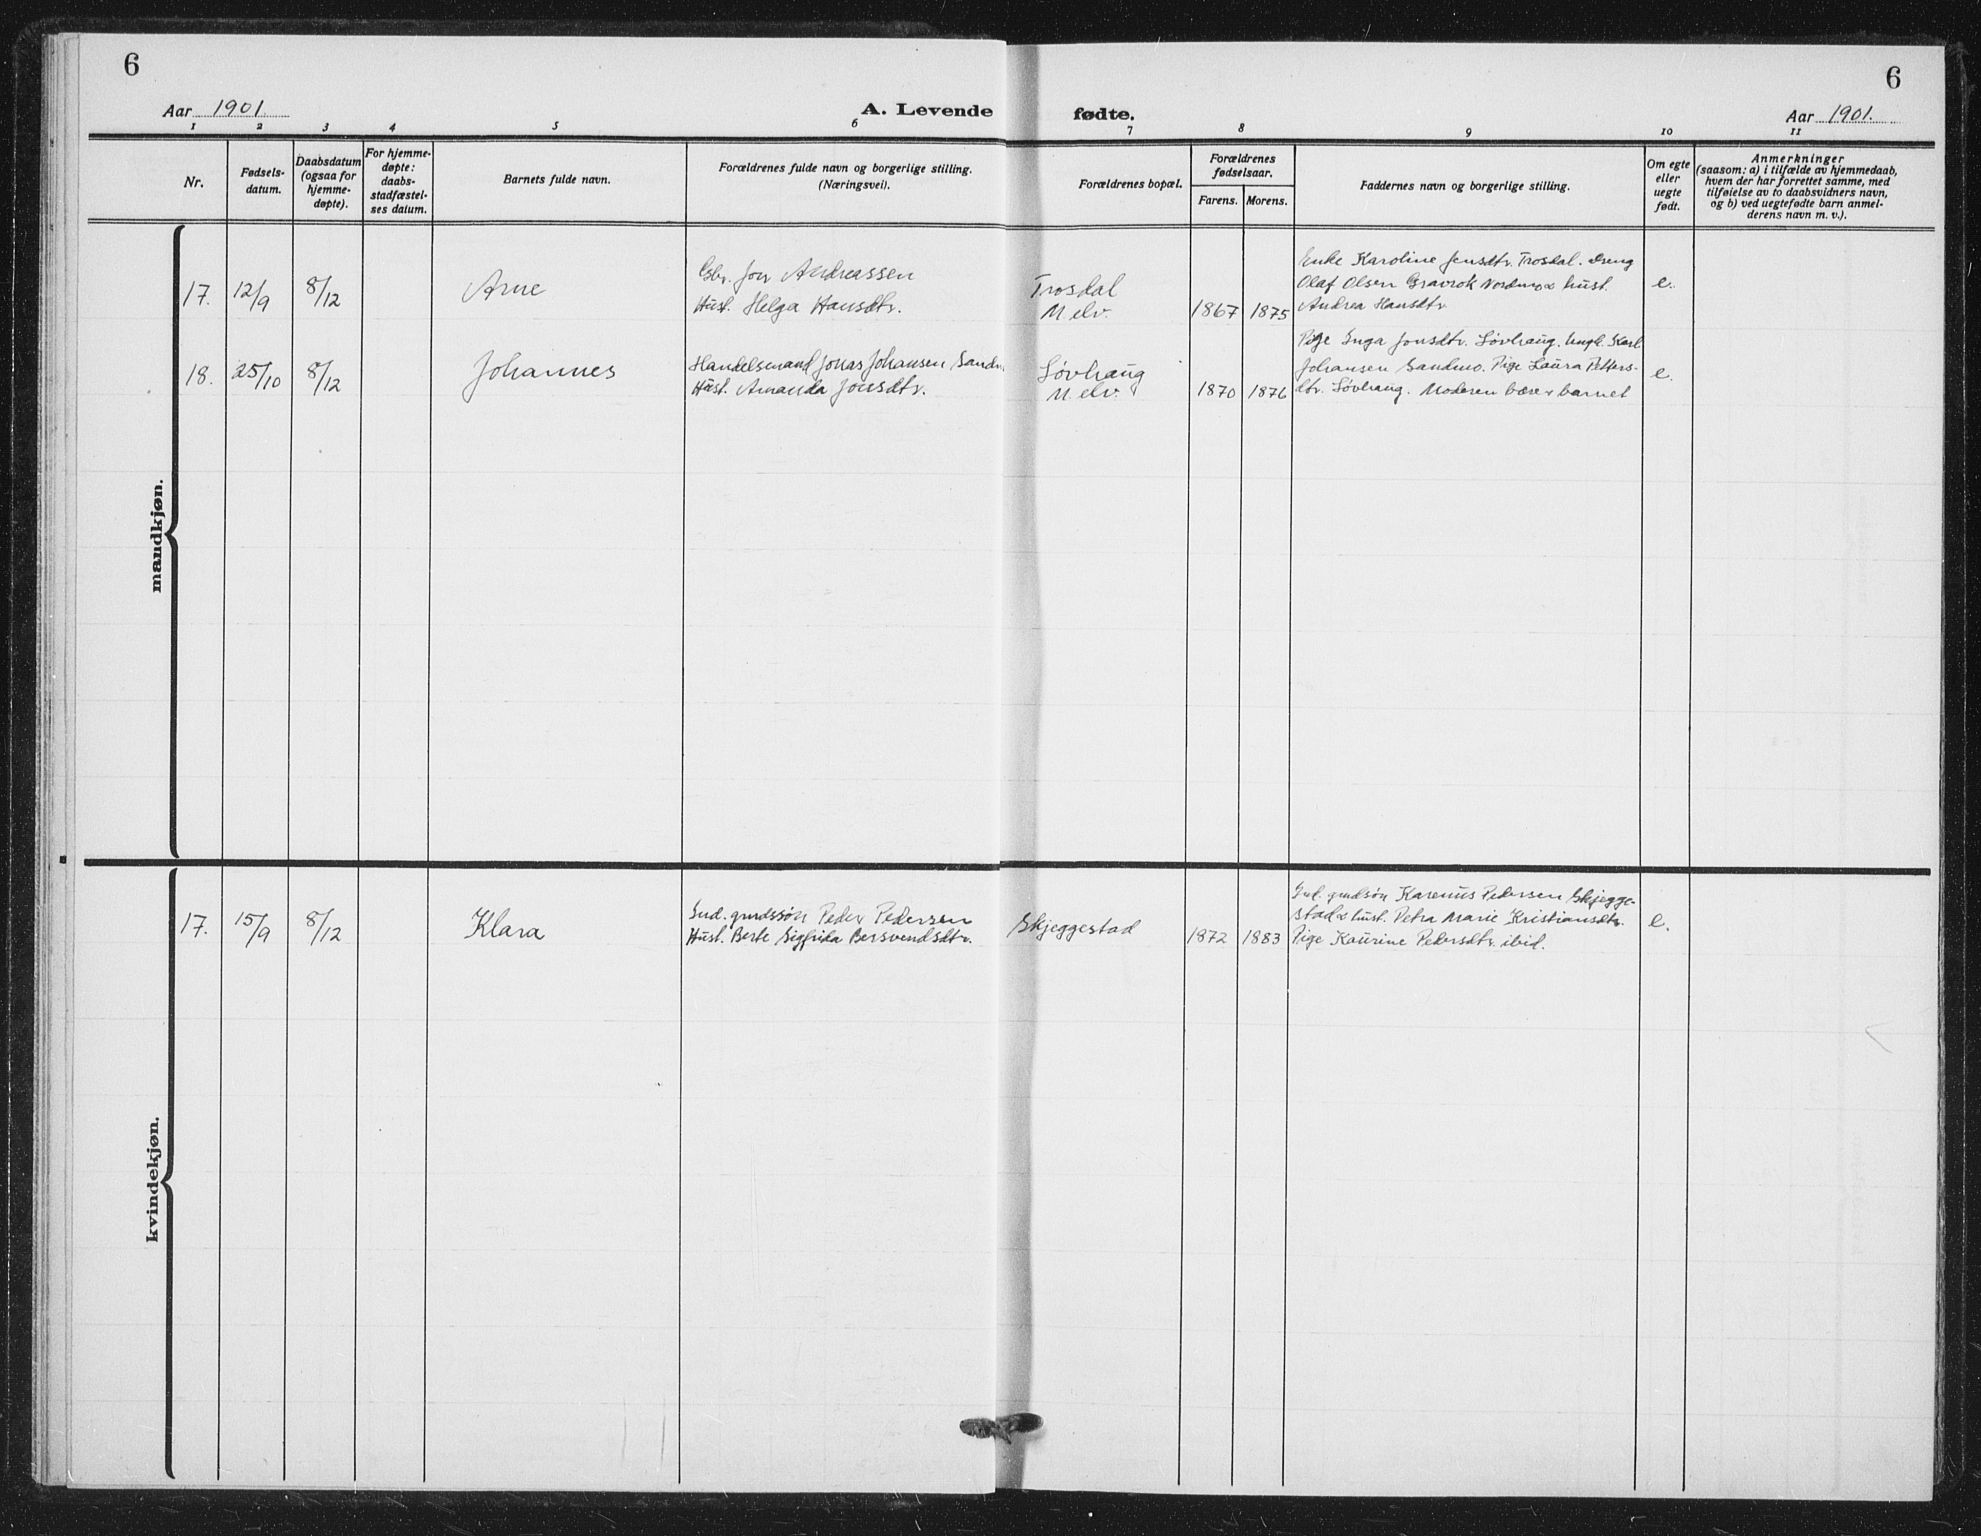 6
6
Aar 1901
A. Levende
fødte.
Aar 1901.
1 2 3 4 5 6 7 8 9 10 11
Nr.
Fødsels-
datum.
Daabsdatum
(ogsaa for
hjemme-
døpte).
For hjemme-
døpte:
daabs-
stadfæstel-
ses datum.
Barnets fulde navn.
Forældrenes fulde navn og borgerlige stilling.
(Næringsvei).
Forældrenes bopæl.
Forældrenes
fødselsaar.
Farens. Morens.
Faddernes navn og borgerlige stilling.
Om egte
eller
uegte
født.
Anmerkninger
(saasom: a) i tilfælde av hjemmedaab,
hvem der har forrettet samme, med
tilføielse av to daabsvidners navn,
og b) ved uegtefødte barn anmel-
derens navn m. v.).
mandkjøn.
17. 12/9 8/12 Arne
Gbr. Jon Andreassen
Hust. Helga Hansdtr.
Trosdal
M elv.
1867 1875
Enke Karoline Jensdtr. Trosdal. Dreng
Olaf Olsen Gravrok Nordmo & hust.
Andrea Hansdtr
e.
18. 25/10 8/12 Johannes
Handelsmand Jonas Johansen Sandm.
Hust. Amanda Jonsdtr.
Løvhaug
M elv.
1870 1876
Pige Inga Jonsdtr. Løvhaug. Ungk. Karl
Johansen Sandmo. Pige Laura Petters-
dtr. Løvhaug. Moderen bærer barnet
e.
kvindekjøn.
17. 15/9 8/12 Klara
Ind. grudssøn Peder Pedersen
Hust. Berte Sigfrida Bersvendsdtr.
Skjeggestad
1872 1883
Ind. grudsøn Karenus Pedersen Skjegge-
stad & hust. Petra Marie Kristiansdtr.
Pige Kaurine Pedersdtr. ibid.
e.